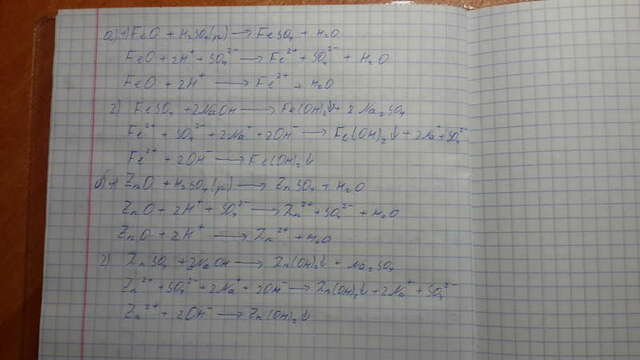 а) 1) FeO + H₂SO₄(р) → FeSO₄ + H₂O
FeO + 2H⁺ + SO₄²⁻ → Fe²⁺ + SO₄²⁻ + H₂O
FeO + 2H⁺ → Fe²⁺ + H₂O
2) FeSO₄ + 2NaOH → Fe(OH)₂↓ + 2Na₂SO₄
Fe²⁺ + SO₄²⁻ + 2Na⁺ + 2OH⁻ → Fe(OH)₂↓ + 2Na⁺ + SO₄²⁻
Fe²⁺ + 2OH⁻ → Fe(OH)₂↓
б) 1) ZnO + H₂SO₄(р) → ZnSO₄ + H₂O
ZnO + 2H⁺ + SO₄²⁻ → Zn²⁺ + SO₄²⁻ + H₂O
ZnO + 2H⁺ → Zn²⁺ + H₂O
2) ZnSO₄ + 2NaOH → Zn(OH)₂↓ + Na₂SO₄
Zn²⁺ + SO₄²⁻ + 2Na⁺ + 2OH⁻ → Zn(OH)₂↓ + 2Na⁺ + SO₄²⁻
Zn²⁺ + 2OH⁻ → Zn(OH)₂↓